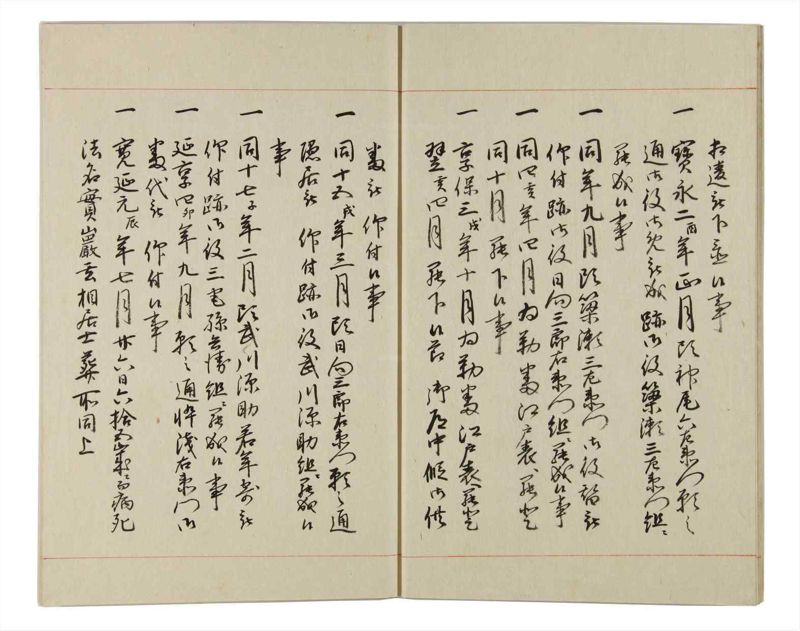 相違被下置候事
一 寶永二酉年正月頭神尾六左衛門願之
通御役御免被成跡御役簗瀬三左衛門組ニ
罷成候事
一 同年九月頭簗瀬三左衛門御役替被
仰付跡御役日向三郎右衛門組ニ罷成候事
一 同四亥年四月為勤番江戸表ニ罷登
同十月罷下候事
一 享保三戌年十月為勤番江戸表ニ罷登
翌亥四月罷下候節御道中假御供
番被仰付候事
一 同十五戌年三月頭日向三郎右衛門願之通
隠居被仰付跡御役武川源助組ニ罷成候
事
一 同十七子年二月頭武川源助若年寄被
仰付跡御役三宅孫兵衛組ニ罷成候事
一 延享四卯年九月願之通悴浅右衛門御
番代被仰付候事
一 寛延元辰年七月廿六日六拾歳ニ而病死
法名實巌玄相居士葬所同上